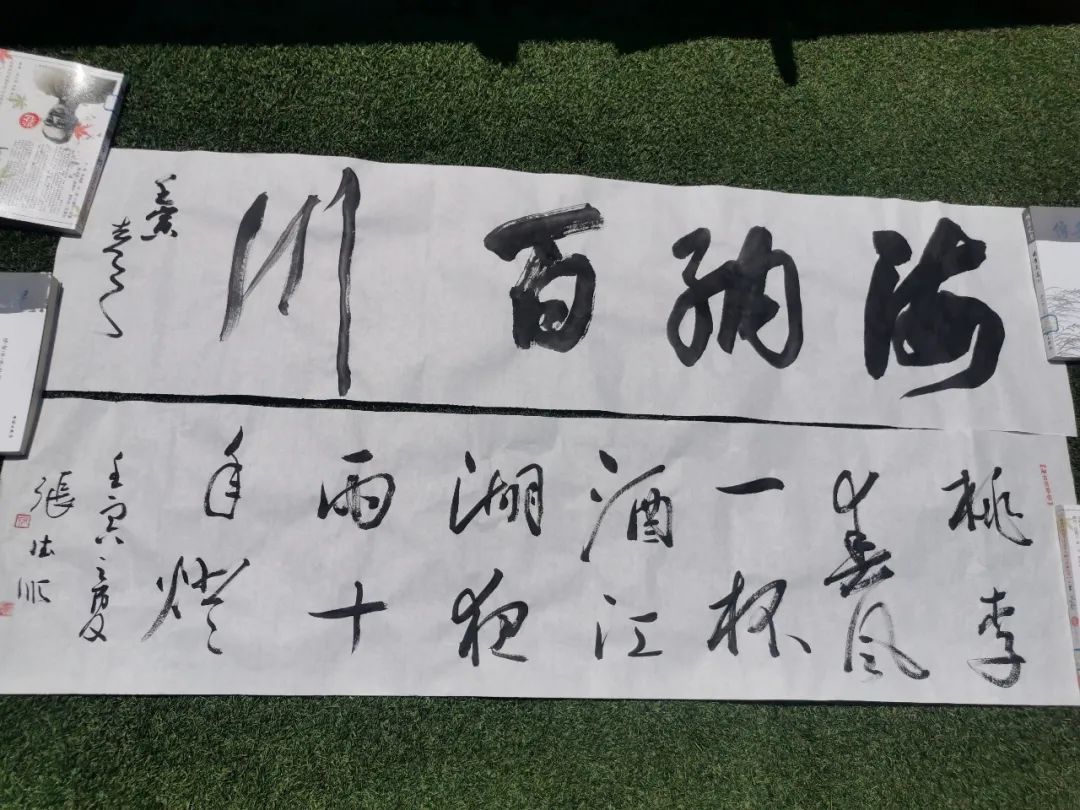 海纳百川
壬寅
桃李
春风
一杯
酒江
湖夜
雨十
年燈
壬寅之夏
張